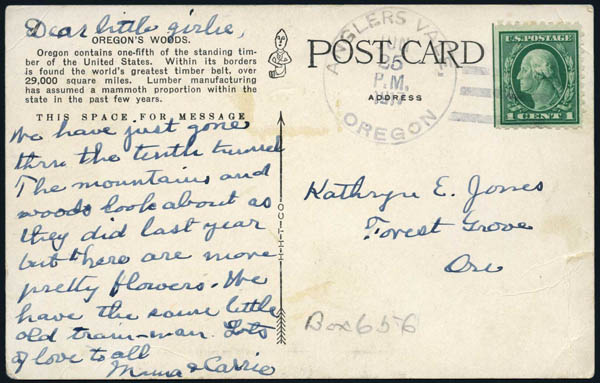 Dear little girlie,
OREGON'S WOODS.
Oregon contains one-fifth of the standing tim-
ber of the United States. Within its borders
is found the world's greatest timber belt, over
29,000 square miles. Lumber manufacturing
has assumed a mammoth proportion within the
state in the past few years.
THIS SPACE FOR MESSAGE
We have just gone
thru the tenth tunnel
The mountains and
woods look about as
they did last year
but there are more
pretty flowers. We
have the same little
old train-man. Lots
of love to all
& Carrie
POST CARD
ADDRESS
ANGLERS
JUN
25
P.M.
OREGON
U.S. POSTAGE
1 CENT 1
Kathryn E. Jones
Forest Grove
Ore
Box 656